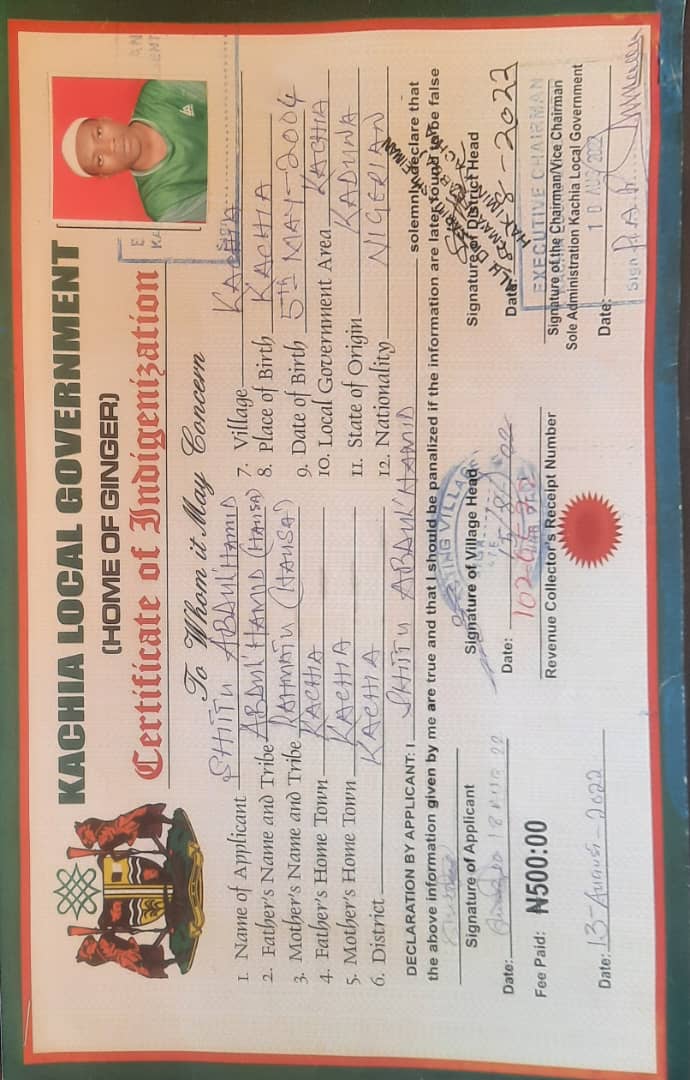 KACHIA LOCAL GOVERNMENT
(HOME OF GINGER)
Certificate of Indigenization
To Whom it May Concern
1. Name of Applicant SHITU ABDUL'HAMID
2. Father's Name and Tribe ABDUL'HAMID (HAUSA)
3. Mother's Name and Tribe RAHMATU (HAUSA)
4. Father's Home Town KACHIA
5. Mother's Home Town KACHIA
6. District KACHIA
7. Village KACHIA
8. Place of Birth KACHIA
9. Date of Birth 5th MAY-2004
10. Local Government Area KACHIA
11. State of Origin KADUNA
12. Nationality NIGERIAN
DECLARATION BY APPLICANT: I SHITU ABDUL'HAMID solemnly declare that
the above information given by me are true and that I should be panalized if the information are later found to be false
Signature of Applicant
Date:
Signature of Village Head
Date:
Signature of District Head
Date: 8-2022
Fee Paid: ₦500:00
Date: 13-August-2022
Revenue Collector's Receipt Number
EXECUTIVE CHAIRMAN
Signature of the Chairman/Vice Chairman
Sole Administration Kachia Local Government
Date: 10 AUG 2022
Sign